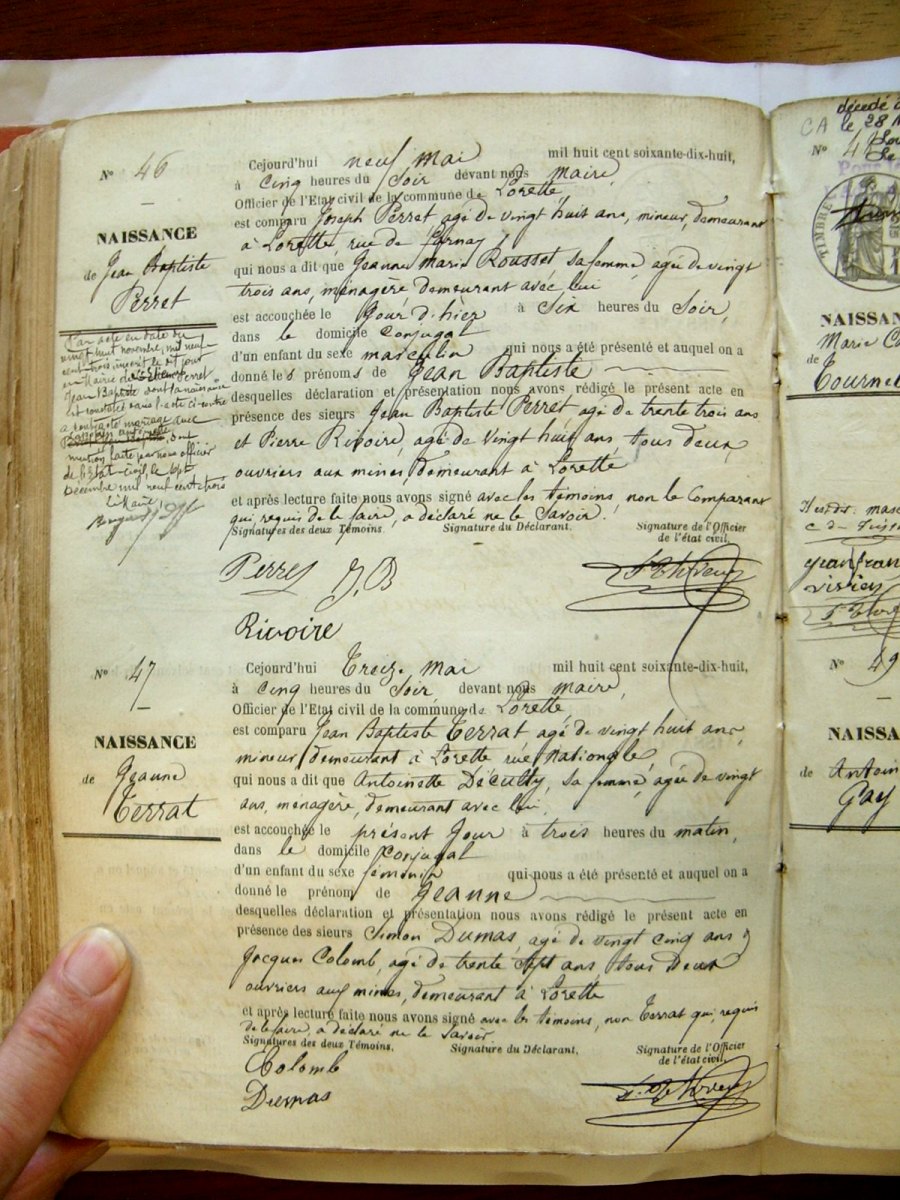 N° 46
NAISSANCE
de Jean Baptiste
Perret
Par acte en date du
vingt huit novembre, mil neuf
cent trois, inscrit le dit jour
en Mairie de Perret
Jean Baptiste dont la naissance
est constatée dans l'acte ci-contre
a contracté mariage avec
mention faite par nous officier
de l'Etat-civil le sept
Décembre mil neuf cent trois
Le Maire,
Cejourd'hui neuf Mai mil huit cent soixante-dix-huit,
à Cinq heures du Soir devant nous Maire,
Officier de l'Etat civil de la commune de Lorette
est comparu Joseph Perret agé de vingt huit ans, mineur, demeurant
à Lorette, rue de
qui nous a dit que Jeanne Marie Rousset sa femme, agée de vingt
trois ans, ménagère demeurant avec lui
est accouchée le Jour d'hier à Six heures du Soir,
dans le domicile Conjugal
d'un enfant du sexe masculin qui nous a été présenté et auquel on a
donné les prénoms de Jean Baptiste
desquelles déclaration et présentation nous avons rédigé le présent acte en
présence des sieurs Jean Baptiste Perret agé de trente trois ans
et Pierre Rivoire, agé de vingt huit ans, tous deux,
ouvriers aux mines, demeurant à Lorette
et après lecture faite nous avons signé avec les témoins, non le Comparant
qui, requis de le faire, a déclaré ne le Savoir.
Signatures des deux Témoins. Signature du Déclarant. Signature de l'Officier
de l'état civil.
Perret J. B
Rivoire
N° 47
NAISSANCE
de Jeanne
Terrat
Cejourd'hui Treize Mai mil huit cent soixante-dix-huit,
à Cinq heures du Soir devant nous Maire,
Officier de l'Etat civil de la commune de Lorette
est comparu Jean Baptiste Terrat agé de vingt huit ans,
mineur, demeurant à Lorette rue Nationale
qui nous a dit que Antoinette Décully, sa femme agée de vingt
ans, ménagère, demeurant avec lui,
est accouchée le présent Jour à trois heures du matin,
dans le domicile Conjugal
d'un enfant du sexe féminin qui nous a été présenté et auquel on a
donné le prénom de Jeanne
desquelles déclaration et présentation nous avons rédigé le présent acte en
présence des sieurs Simon Dumas, agé de vingt cinq ans &
Jacques Colomb, agé de trente sept ans, tous Deux
ouvriers aux mines, demeurant à Lorette
et après lecture faite nous avons signé avec les témoins, non Terrat qui, requis
de le faire, a déclaré ne le Savoir
Signatures des deux Témoins. Signature du Déclarant. Signature de l'Officier
de l'état civil.
Colomb
Dumas
décédé à
CA le 28
N°
TIMBRE
NAISSAN
Marie C
de
Tournel
N° 49
NAISSA
de Antoin
Gay